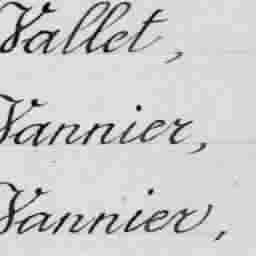 Vallet,
Vannier,
Vannier,